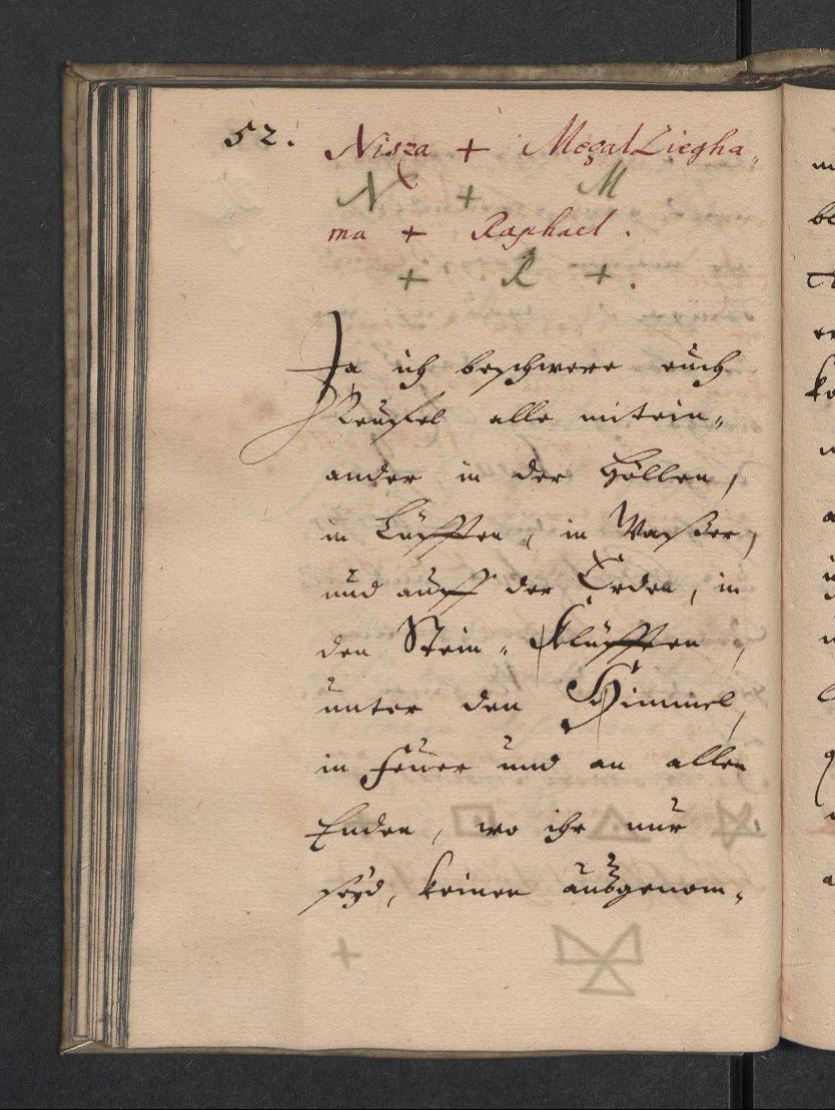 52. Nisza + MegalLiegha„
N + M
ma + Raphael.
+ R +.
Ja ich beschwere euch
Teüfel alle mitein„
ander in der Höllen,
in Lüfften, in Waßer,
und auff der Erden, in
den Stein„Klüfften,
unter den Himmel,
in Feuer und an allen
Enden, wo ihr nur
seyd, keinen außgenom„